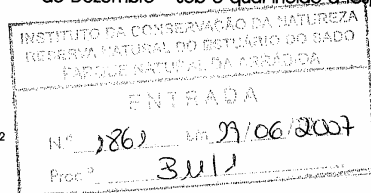 de Dezembro – sob o qual incide a
INSTITUTO DA CONSERVAÇÃO DA NATUREZA
RESERVA NATURAL DO ESTUÁRIO DO SADO
PARQUE NATURAL DA ARRÁBIDA
ENTRADA
N.º 1861 em 19/06/2007
Proc.º